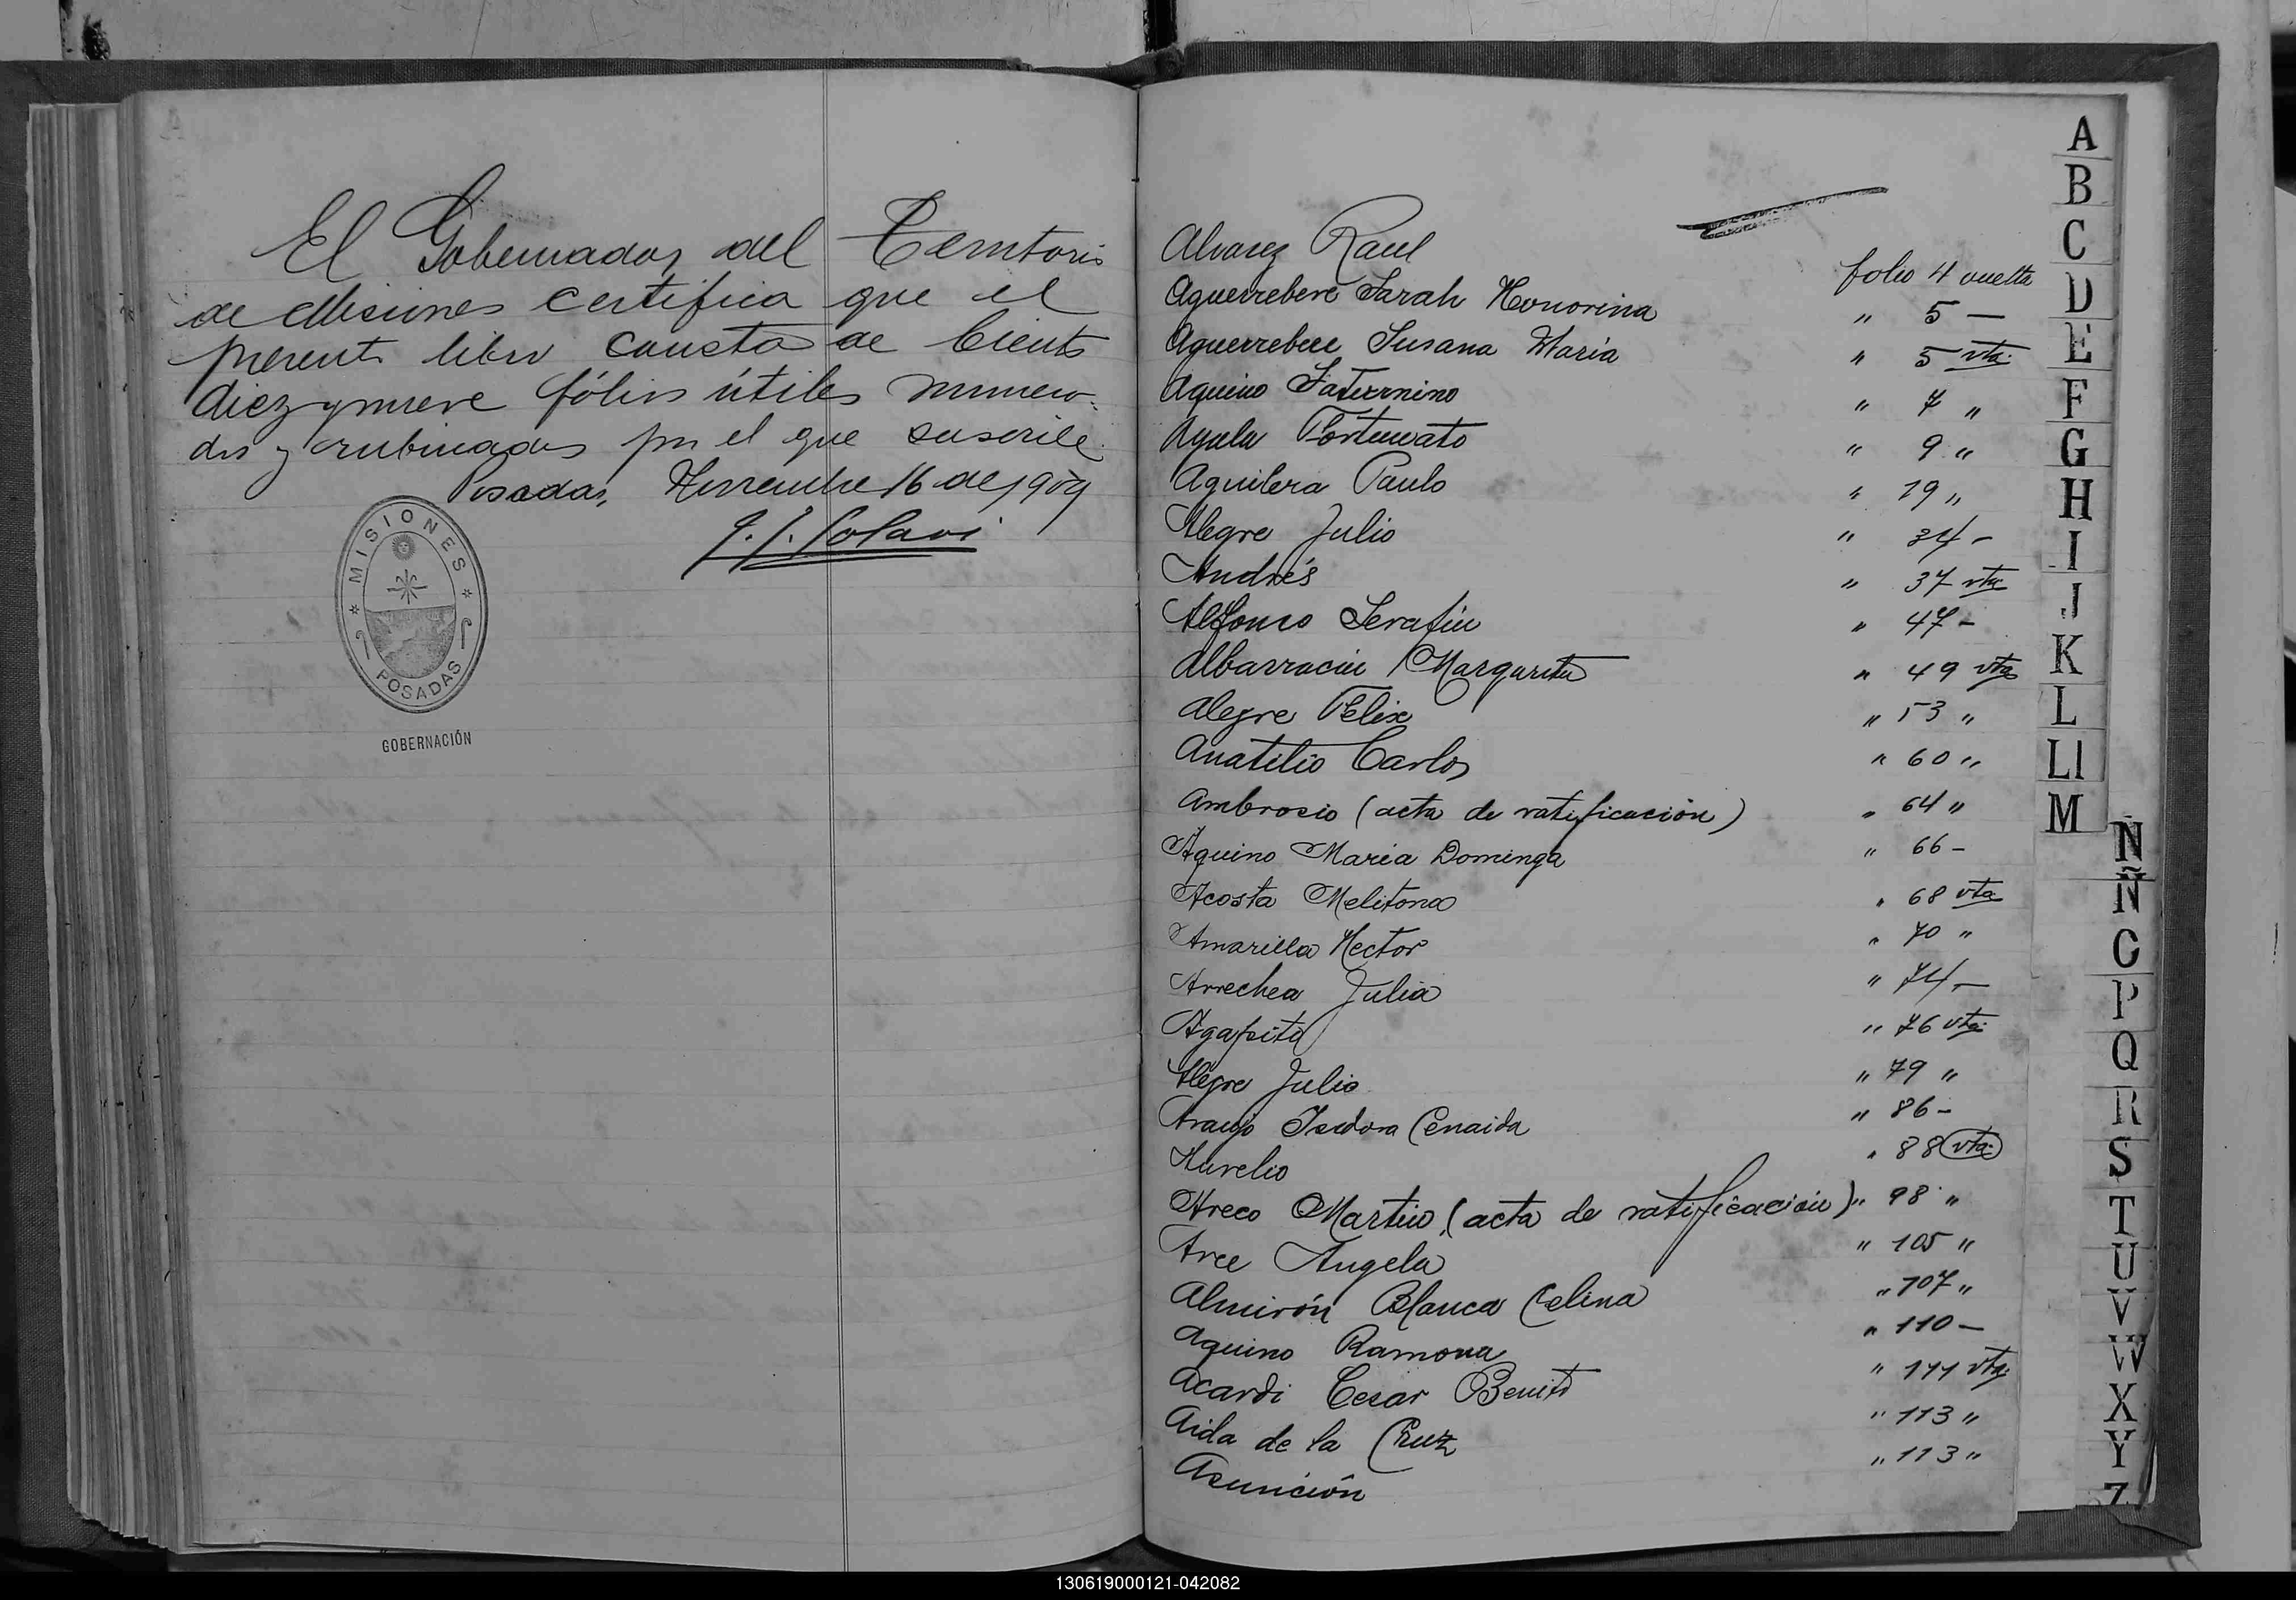 El Gobernador del Territorio
de Misiones certifica que el
presente libro consta de Ciento
diez y nueve fólios útiles numera-
dos y rubricados por el que suscribe.
Posadas, Noviembre 16 de 1909
MISIONES
POSADAS
GOBERNACIÓN
Alvarez Raul folio 4 vuelta
Aguerrebere Sarah Honorina " 5 —
Aguerrebere Susana Maria " 5 vta.
Aquino Saturnino " 7 "
Ayala Fortunato " 9 "
Aguilera Paulo " 19 "
Alegre Julio " 34 -
Andrés " 37 vta
Alfonso Serafin " 47 -
Albarracin Margarita " 49 vta
Alegre Felix " 53 "
Anatilio Carlos " 60 "
Ambrosio (acta de ratificación) " 64 "
Aquino Maria Dominga " 66 -
Acosta Melitona " 68 vta
Amarilla Hector " 70 "
Arrechea Julia " 74 -
Agapito " 76 vta.
Alegre Julio " 79 "
Araujo Isidora Cenaida " 86 -
Aurelio " 88 vta.
Areco Martin (acta de ratificación) " 98 "
Arce Angela " 105 "
Almirón Blanca Celina " 107 "
Aquino Ramona " 110 —
Acardi Cesar Benito " 111 vta.
Aida de la Cruz " 113 "
Asunción " 113 "
A
B
C
D
E
F
G
H
I
J
K
L
Ll
M
N
Ñ
O
P
Q
R
S
T
U
V
W
X
Y
Z
130619000121-042082